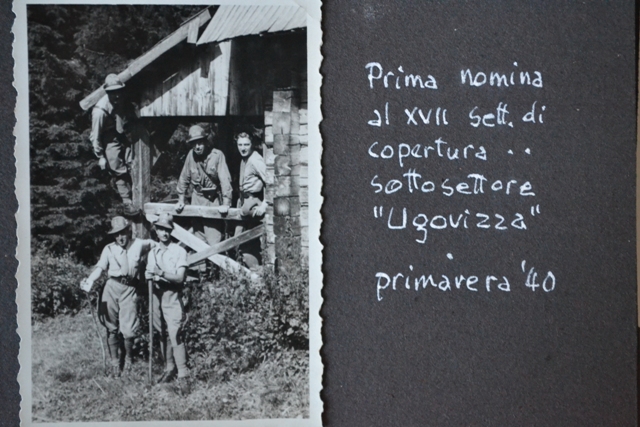 Prima nomina
al XVII Sett. di
copertura ..
sottosettore
"Ugovizza"
primavera '40